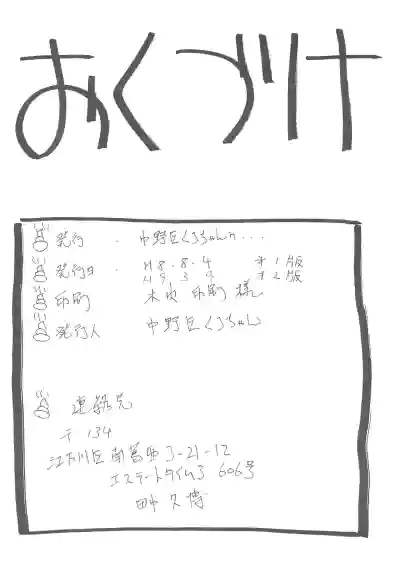 おくづけ
発行 ・ 中野区くろちゃんの...
発行日 ・ H8.8.4 オ1版
H9.3.9 オ2版
印刷 印刷 様
発行人 中野区くろちゃん
連絡先
〒134
江戸川区南葛西3-21-12
エステートタイム3 606号
田中久博